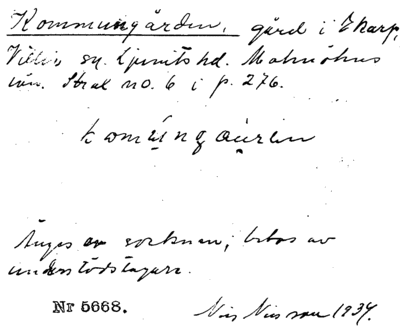 Kommungården, gård i Skarp,
Villie sn. Ljunits hd. Malmöhus
län. Strel no. 6 i p. 276.
Äges av socknen; bebos av
understödstagare.
Nr 5668.
Nils Nilsson 1934.